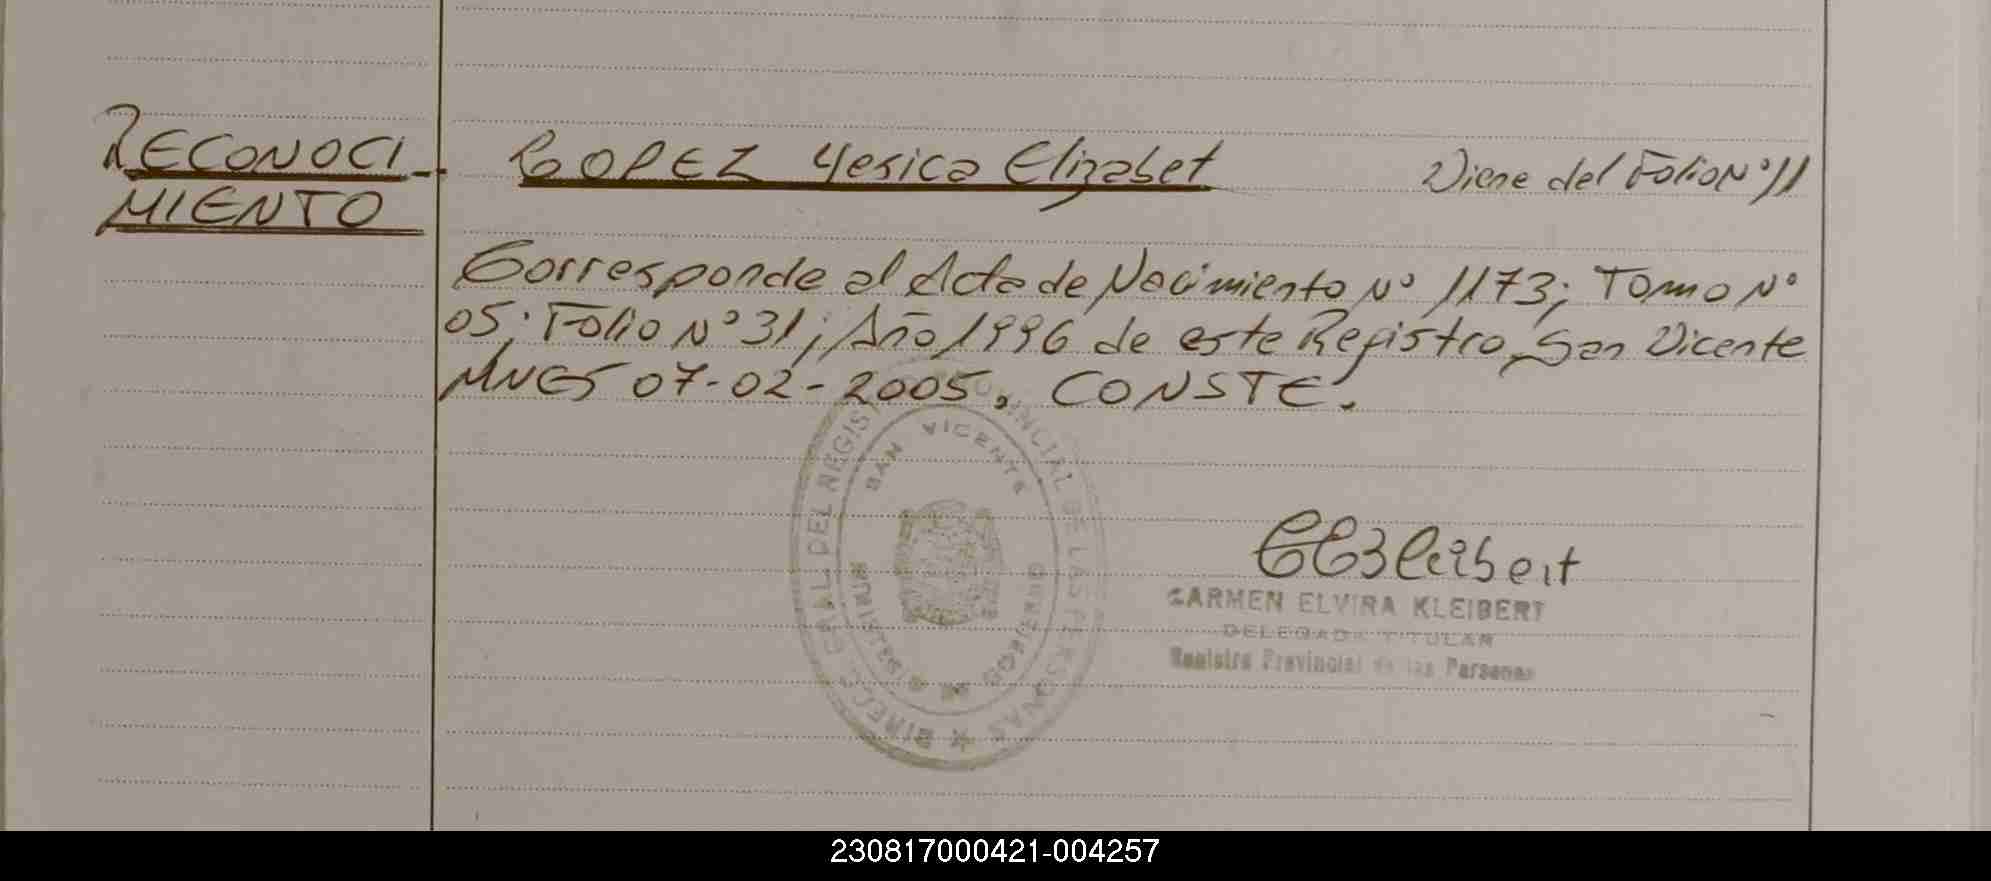 RECONOCI - LOPEZ Yesica Elizabet Viene del Folio Nº 11
MIENTO
Corresponde al Acta de Nacimiento Nº 1173; Tomo Nº
05; Folio Nº 31; Año 1996 de este Registro, San Vicente
MNES 07-02-2005. CONSTE.
DIRECC. GRAL. DEL REGISTRO PROVINCIAL DE LAS PERSONAS
SAN VICENTE
MISIONES
CARMEN ELVIRA KLEIBERT
DELEGADA TITULAR
Registro Provincial de las Personas
230817000421-004257